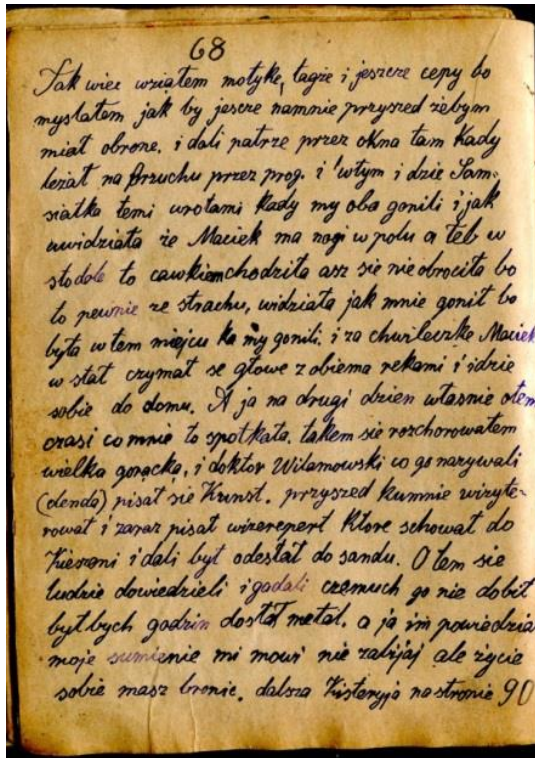 68
Tak wiec wziątem motyke, tagże i jeszcze cepy bo
myslatem jak by jescze namnie przyszed żebym
miat obrone. i dali patrze przez okna tam kady
leżat na brzuchu przez prog. i wtym i dzie Sam-
siatka temi wrotami kady my oba gonili i jak
uwidziata że Maciek ma nogi w polu a łeb w
stodole to cawkiem chodzita asz sie nie obrocita bo
to pewnie ze strachu, widziata jak mnie gonit bo
byta w tem miejcu ka my gonili. i za chwileczke Maciek
w stat czymat se głowe z obiema rekami i idzie
sobie do domu. A ja na drugi dzien wtasnie otem
czasi co mnie to spotkata. takem sie rozchorowatem
wielka gorącka, i doktor Witamowski co go nazywali
(denda) pisat sie Kunszt. przyszed kumnie wizyte-
rowat i zaraz pisat wizerepert ktore schowat do
kieszoni i dali byt odestat do sandu. O tem sie
ludzie dowiedzieli i gadali czemuch go nie dobit
bytbych godzin dostat metal. a ja im powiedzia
moje sumienie mi mowi nie zabijaj ale życie
sobie masz bronic. dalsza histeryja na stronie 90